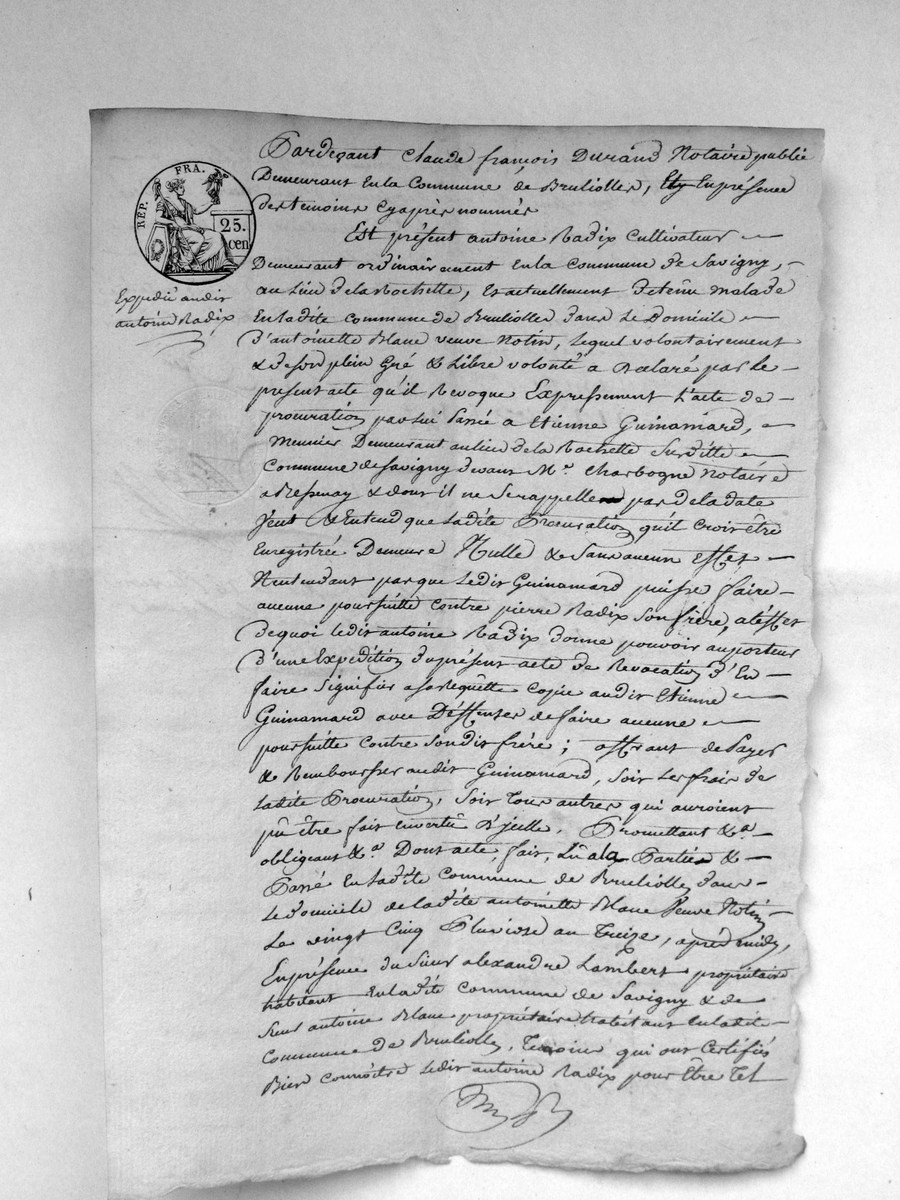 Pardeçant claude françois Durand Notaire public
Demeurant En la Commune de Brullioller, Ety En présence
des temoins Cyaprès nommés
RÉP. FRA.
25. cen
Est présent antoine Radix Cultivateur
Demeurant ordinairement En la Commune de Savigny,
au Lieu de la Rochette, Et actuellement detenu malade
En ladite Commune de Brullioller dans Le Domicile
Expedié audit
antoine Radix
d'antoinette Blanc veuve Notin, Lequel volontairement
& de son plein Gré & Libre volonté a Déclaré par le
présent acte qu'il Revoque Expressement L'acte de
procuration par lui Passée a Etienne Guinamard,
meunier Demeurant au lieu de la Rochette Surditte
Commune de Savigny devant Mr. Charbogne Notaire
a Bessenay & dont il ne Se rappelle pas de la date
Veut & Entend que Ladite Procuration qu'il Crois être
Enregistrée Demeure Nulle & Sans aucun Effet
N'entendant pas que Ledit Guinamard puisse faire
aucune poursuitte contre pierre Radix Son frère, a l'effet
de quoi ledit antoine Radix donne pouvoir au porteur
d'une Expédition du présent acte de Revocation d'En
faire Signifier a sa Requêtte Copie audit Etienne
Guinamard avec Deffenses de faire aucune
poursuitte contre Sondit frère ; offrant de Payer
& Rembourser audit Guinamard, Soit Les frais de
Ladite Procuration, Soit Tous autres qui auroient
pû être fait En vertû d'jcelle. Promettant &a.
obligeant &a. Dont acte, fait, Lû a la Partie &
Passé En Ladite Commune de Brulliolle dans
Le domicile de Ladite antoinette Blanc Veuve Notin
Le vingt Cinq Pluviose an Treize, après midy,
En présence du Sieur alexandre Lambert propriétaire
habitant En ladite Commune de Savigny & de
Sieur antoine Blanc propriétaire habitant En ladite
Commune de Brulliolle, Temoins qui ont Certifiés
Bien Connoitre Ledit antoine Radix pour Être Tel